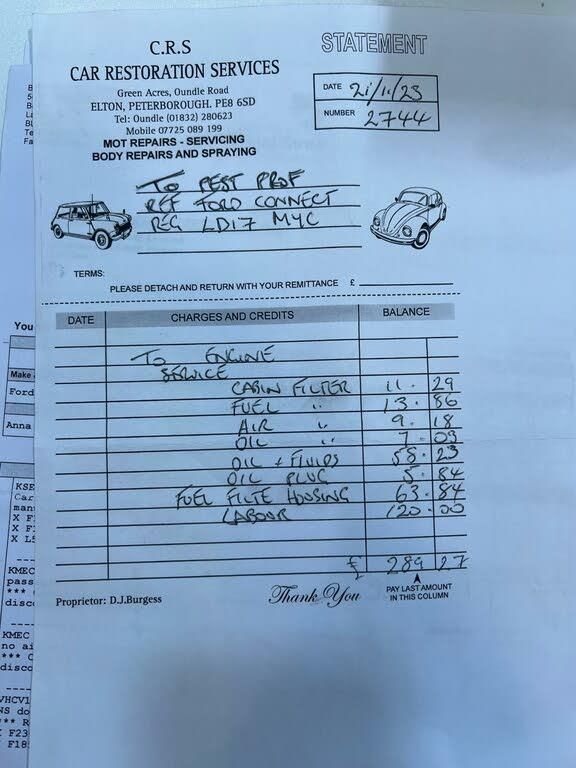 C.R.S
CAR RESTORATION SERVICES
Green Acres, Oundle Road
ELTON, PETERBOROUGH. PE8 6SD
Tel: Oundle (01832) 280623
Mobile 07725 089 199
MOT REPAIRS - SERVICING
BODY REPAIRS AND SPRAYING
STATEMENT
DATE 21/11/23
NUMBER 2744
TO PEST PROF
REF FORD CONNECT
REG LD17 MYC
TERMS:
PLEASE DETACH AND RETURN WITH YOUR REMITTANCE £
DATE CHARGES AND CREDITS BALANCE
TO ENGINE
SERVICE
CABIN FILTER 11.29
FUEL " 13.86
AIR " 9.18
OIL " 7.03
OIL + FLUIDS 58.23
OIL PLUG 5.84
FUEL FILTE HOUSING 63.84
LABOUR 120.00
£ 289 27
Proprietor: D.J.Burgess
Thank You
PAY LAST AMOUNT
IN THIS COLUMN
You
Make
Ford
Anna
KSE
Car
man
X F
X F
X L5
KMEC
pass
***
disc
KMEC
no ai
*** C
disco
VHCV1
NS do
*** R
F23
F18